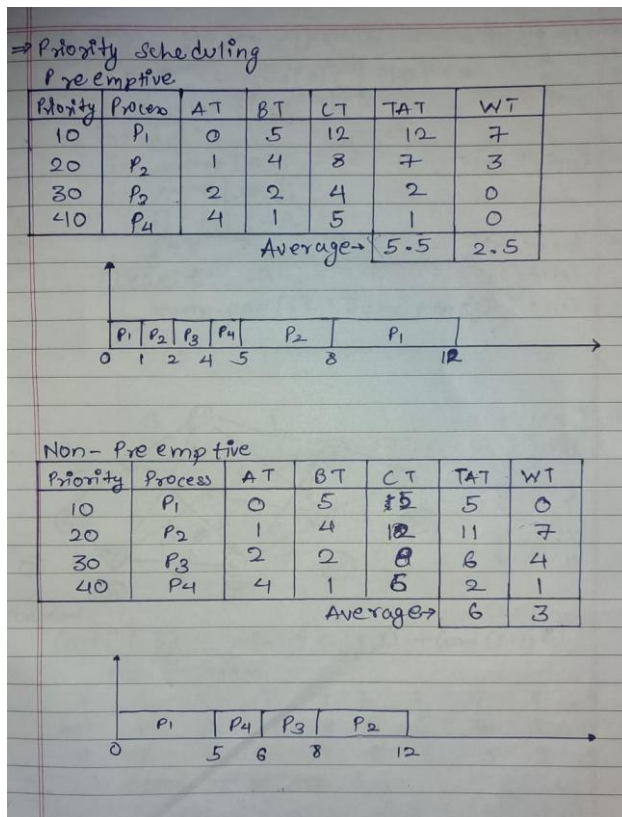 ⇒ Priority Scheduling
Preemptive
Priority Process AT BT CT TAT WT
10 P1 0 5 12 12 7
20 P2 1 4 8 7 3
30 P3 2 2 4 2 0
40 P4 4 1 5 1 0
Average→ 5.5 2.5
P1 P2 P3 P4 P2 P1
0 1 2 4 5 8 12
Non-Preemptive
Priority Process AT BT CT TAT WT
10 P1 0 5 5 5 0
20 P2 1 4 12 11 7
30 P3 2 2 8 6 4
40 P4 4 1 6 2 1
Average→ 6 3
P1 P4 P3 P2
0 5 6 8 12